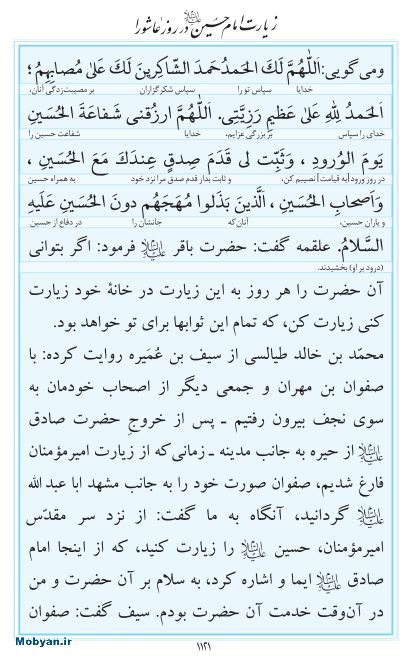 زیارت امام حسین علیه‌السلام در روز عاشورا
ومی گویی: اَللّٰهُمَّ لَكَ الحَمدُ حَمدَ الشّاكِرينَ لَكَ عَلىٰ مُصابِهِمُ ؛
خدایا سپاس تو را سپاس شکرگزاران بر مصیبت‌زدگی آنان،
اَلحَمدُ لِلّٰهِ عَلىٰ عَظيمِ رَزِيَّتى. اَللّٰهُمَّ ارزُقنى شَفاعَةَ الحُسَينِ
خدای را سپاس بر بزرگی عزایم، خدایا شفاعت حسین را
يَومَ الوُرودِ ، وَثَبِّت لى قَدَمَ صِدقٍ عِندَكَ مَعَ الحُسَينِ ،
در روز ورود [به قیامت] نصیبم کن، و ثابت بدار قدم صدق مرا نزد خود به همراه حسین
وَاَصحابِ الحُسَينِ ، اَلَّذينَ بَذَلوا مُهَجَهُم دونَ الحُسَينِ عَلَيهِ
و یاران حسین، آنان‌که جانشان را در دفاع از حسین
السَّلامُ. علقمه گفت: حضرت باقر علیه‌السلام فرمود: اگر بتوانی
(درود بر او) بخشیدند.
آن حضرت را هر روز به این زیارت در خانهٔ خود زیارت
کنی زیارت کن، که تمام این ثوابها برای تو خواهد بود.
محمّد بن خالد طیالسی از سیف بن عُمَیره روایت کرده: با
صفوان بن مهران و جمعی دیگر از اصحاب خودمان به
سوی نجف بیرون رفتیم ـ پس از خروجِ حضرت صادق
علیه‌السلام از حیره به جانب مدینه ـ زمانی‌که از زیارت امیرمؤمنان
فارغ شدیم، صفوان صورت خود را به جانب مشهد ابا عبد الله
علیه‌السلام گردانید، آنگاه به ما گفت: از نزد سر مقدّس
امیرمؤمنان، حسین علیه‌السلام را زیارت کنید، که از اینجا امام
صادق علیه‌السلام ایما و اشاره کرد، به سلام بر آن حضرت و من
در آن‌وقت خدمت آن حضرت بودم. سیف گفت: صفوان
١١٢١
Mobyan.ir